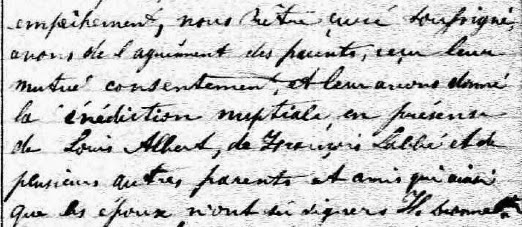 empêchement, nous Prêtre curé soussigné,
avons de l'agrément des parents, reçu leur
mutuel consentement, et leur avons donné
la bénédiction nuptiale en présence
de Louis Albert, de François Labbé et de
plusieurs autres parents et amis qui ainsi
que les époux n'ont su signer.